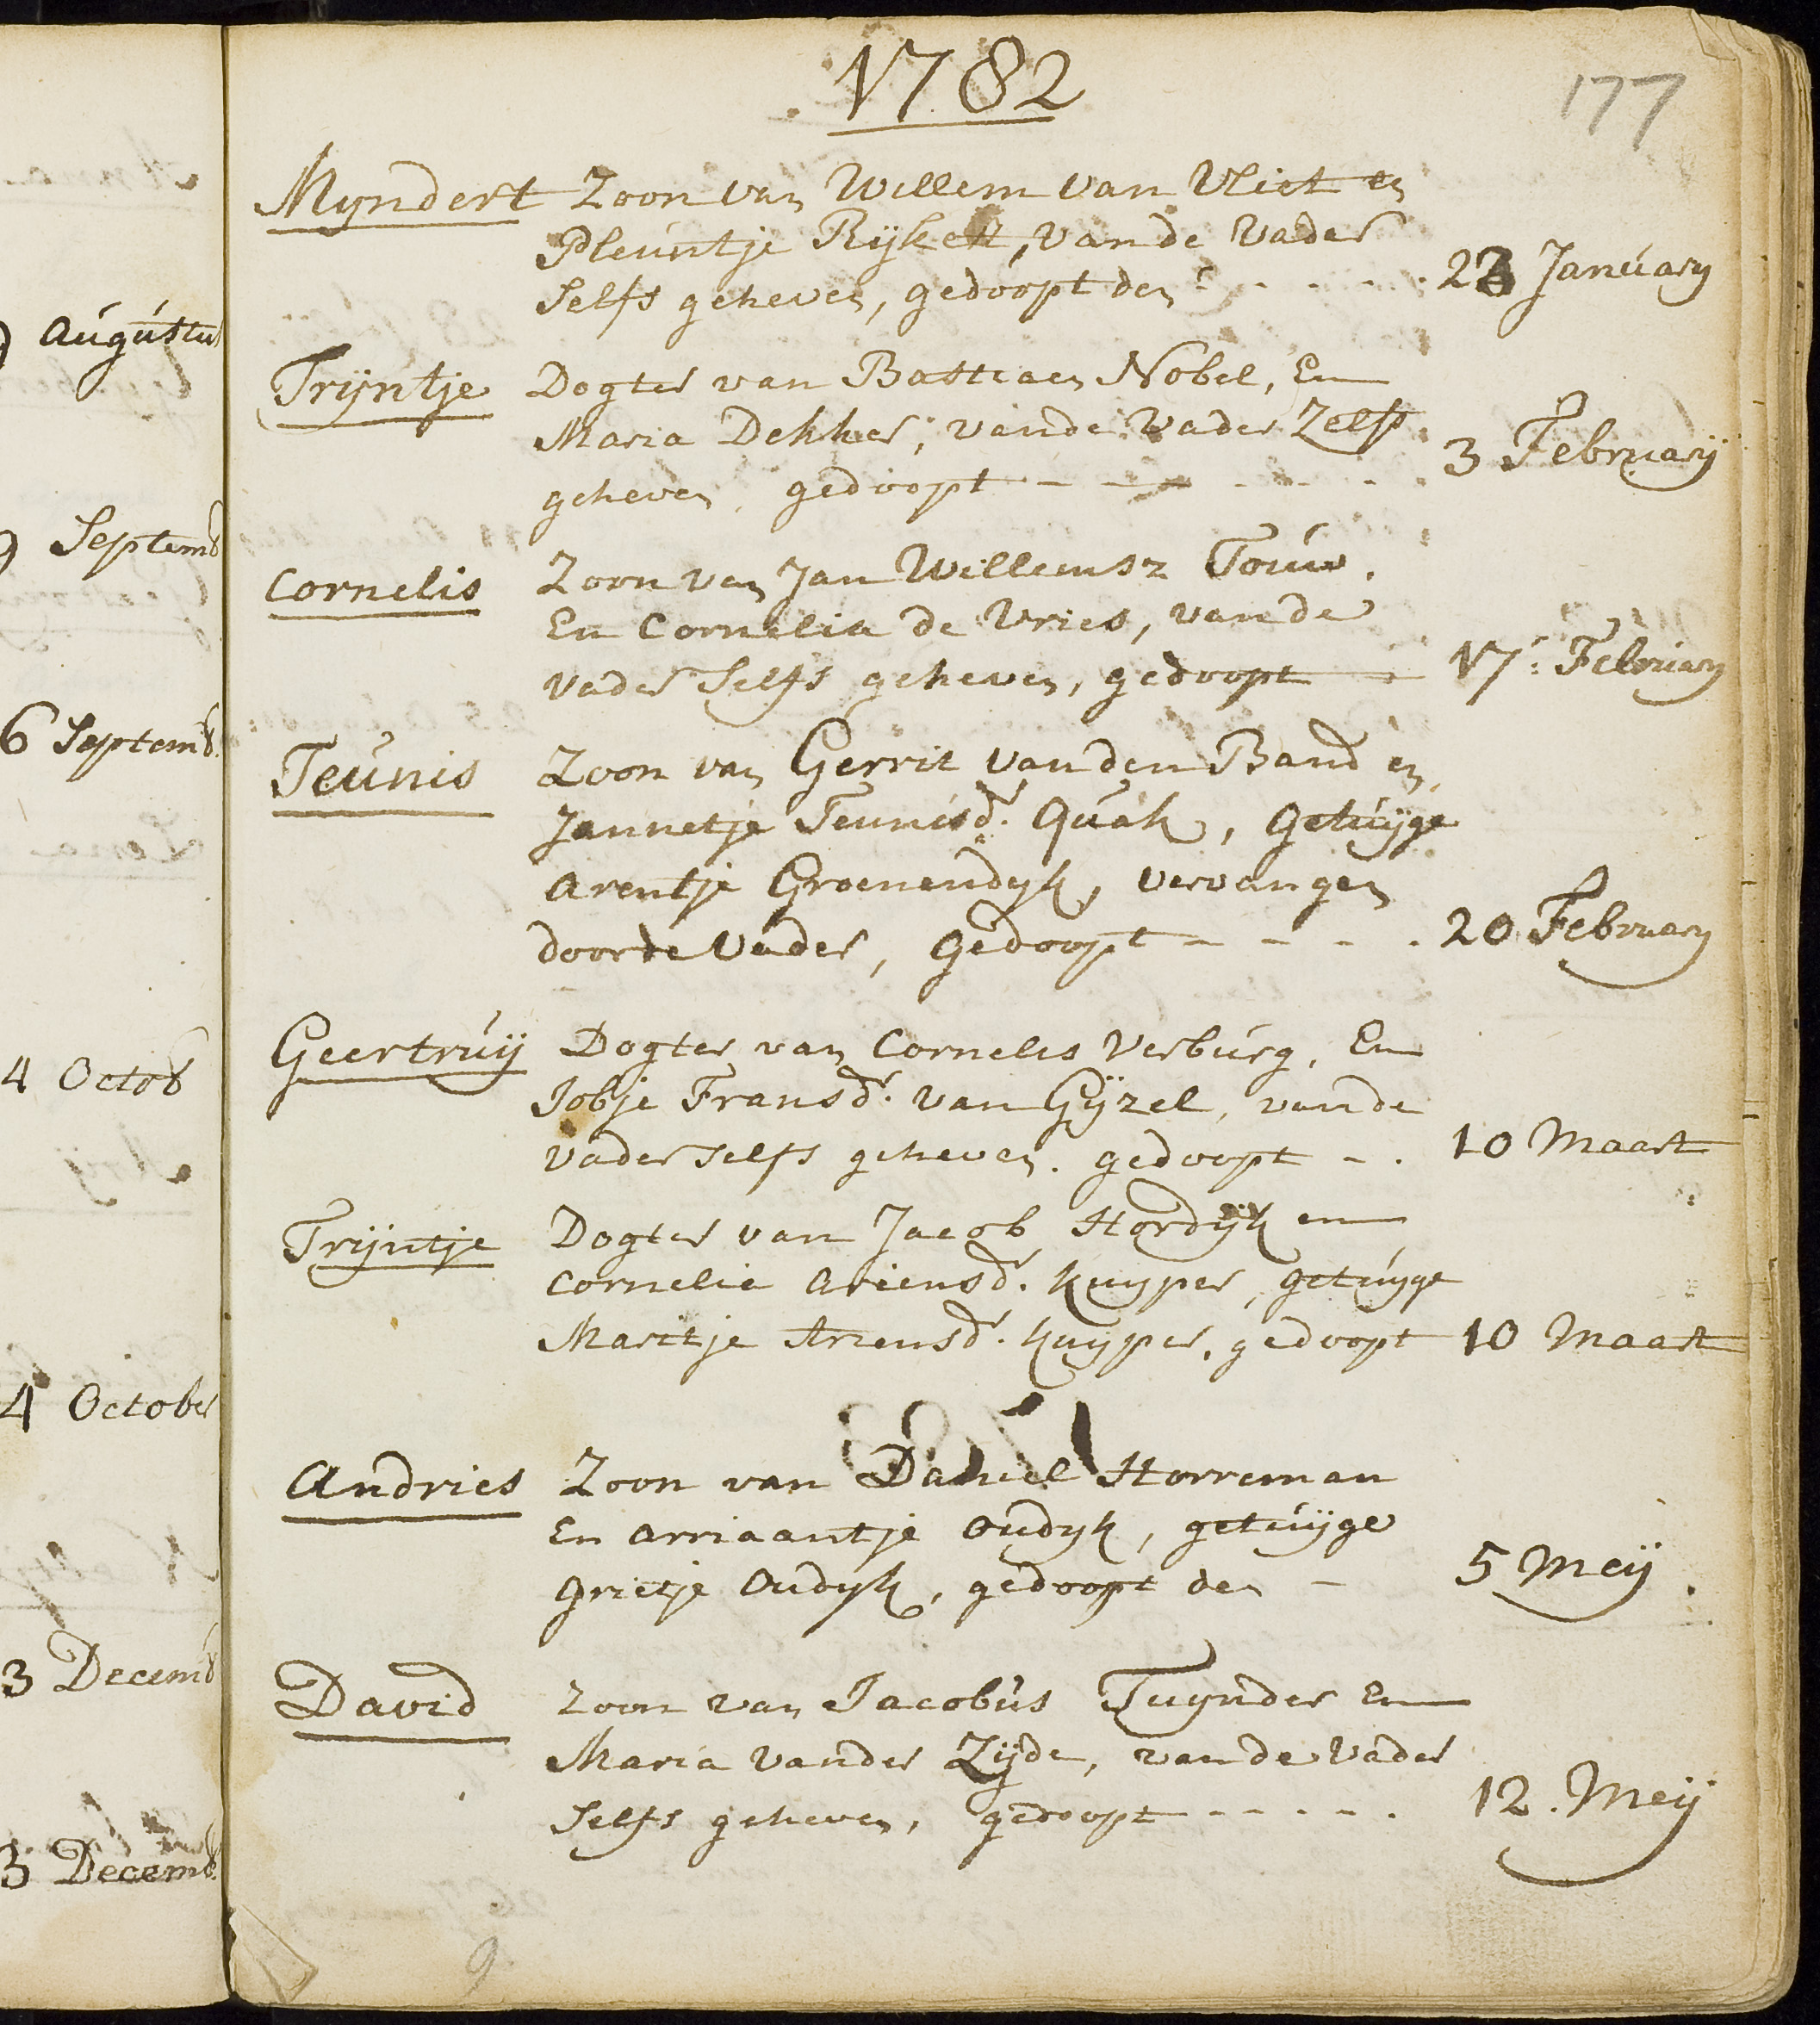 1782
177
Myndert Zoon van Willem van Vliet en
Pleuntje Rijke, vande Vader
Selfs geheven, gedoopt den January
Trijntje Dogter van Bastiaen Nobel, En
Maria Dekker, vande Vader Zelfs
geheven, gedoopt - - - - - - 3 February
Cornelis Zoon van Jan Willemsz Touw.
En Cornelia de Vries, vande
Vader Selfs geheven, gedoopt 17: February
Teunis Zoon van Gerrit van den Band en
Jannetje Teunisdr. Quak, Getuyge
Arentje Groenendyk, vervangen
door de Vader, Gedoopt - - - - 20 February
Geertruij Dogter van Cornelis Verburg, En
Jobje Fransdr. van Gijzel, vande
Vader selfs geheven. gedoopt - . 10 Maart
Trijntje Dogter van Jacob Hordijk en
Cornelia Ariensdr. Kuyper, getuyge
Maritje Ariensdr. Kuyper, gedoopt 10 Maart
Andries Zoon van Daniel Horreman
En Arriaantje Oudyk, getuijge
Grietje Oudyk, gedoopt den - 5 Meij
David Zoon van Jacobus Tuynder En
Maria vander Zijde, vande Vader
Selfs geheven, gedoopt - - - - - 12. Meij
9
Augustus
Septemb
6 Septemb.
4 Octob
4 October
3 Decemb
3 Decemb.